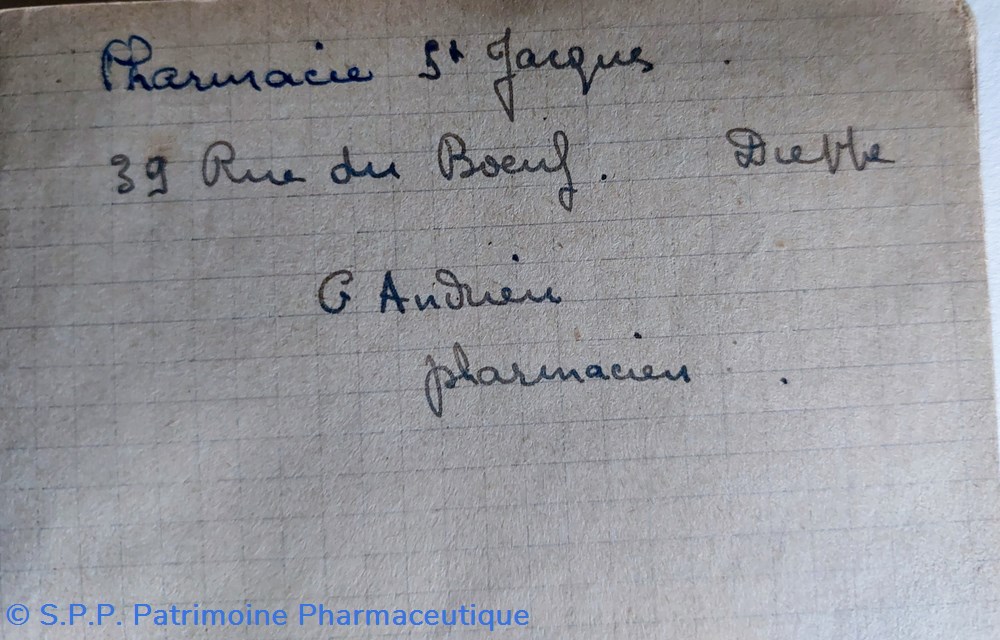 Pharmacie St Jacques
39 Rue du Boeuf. Dieppe
G Andrieu
pharmacien.
© S.P.P. Patrimoine Pharmaceutique